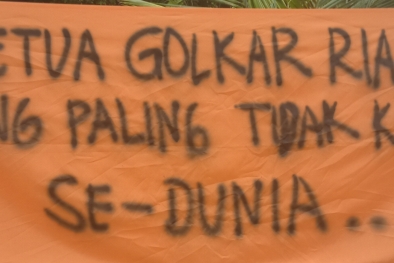 ETUA GOLKAR RIA
NG PALING TIDAK K
SE-DUNIA..